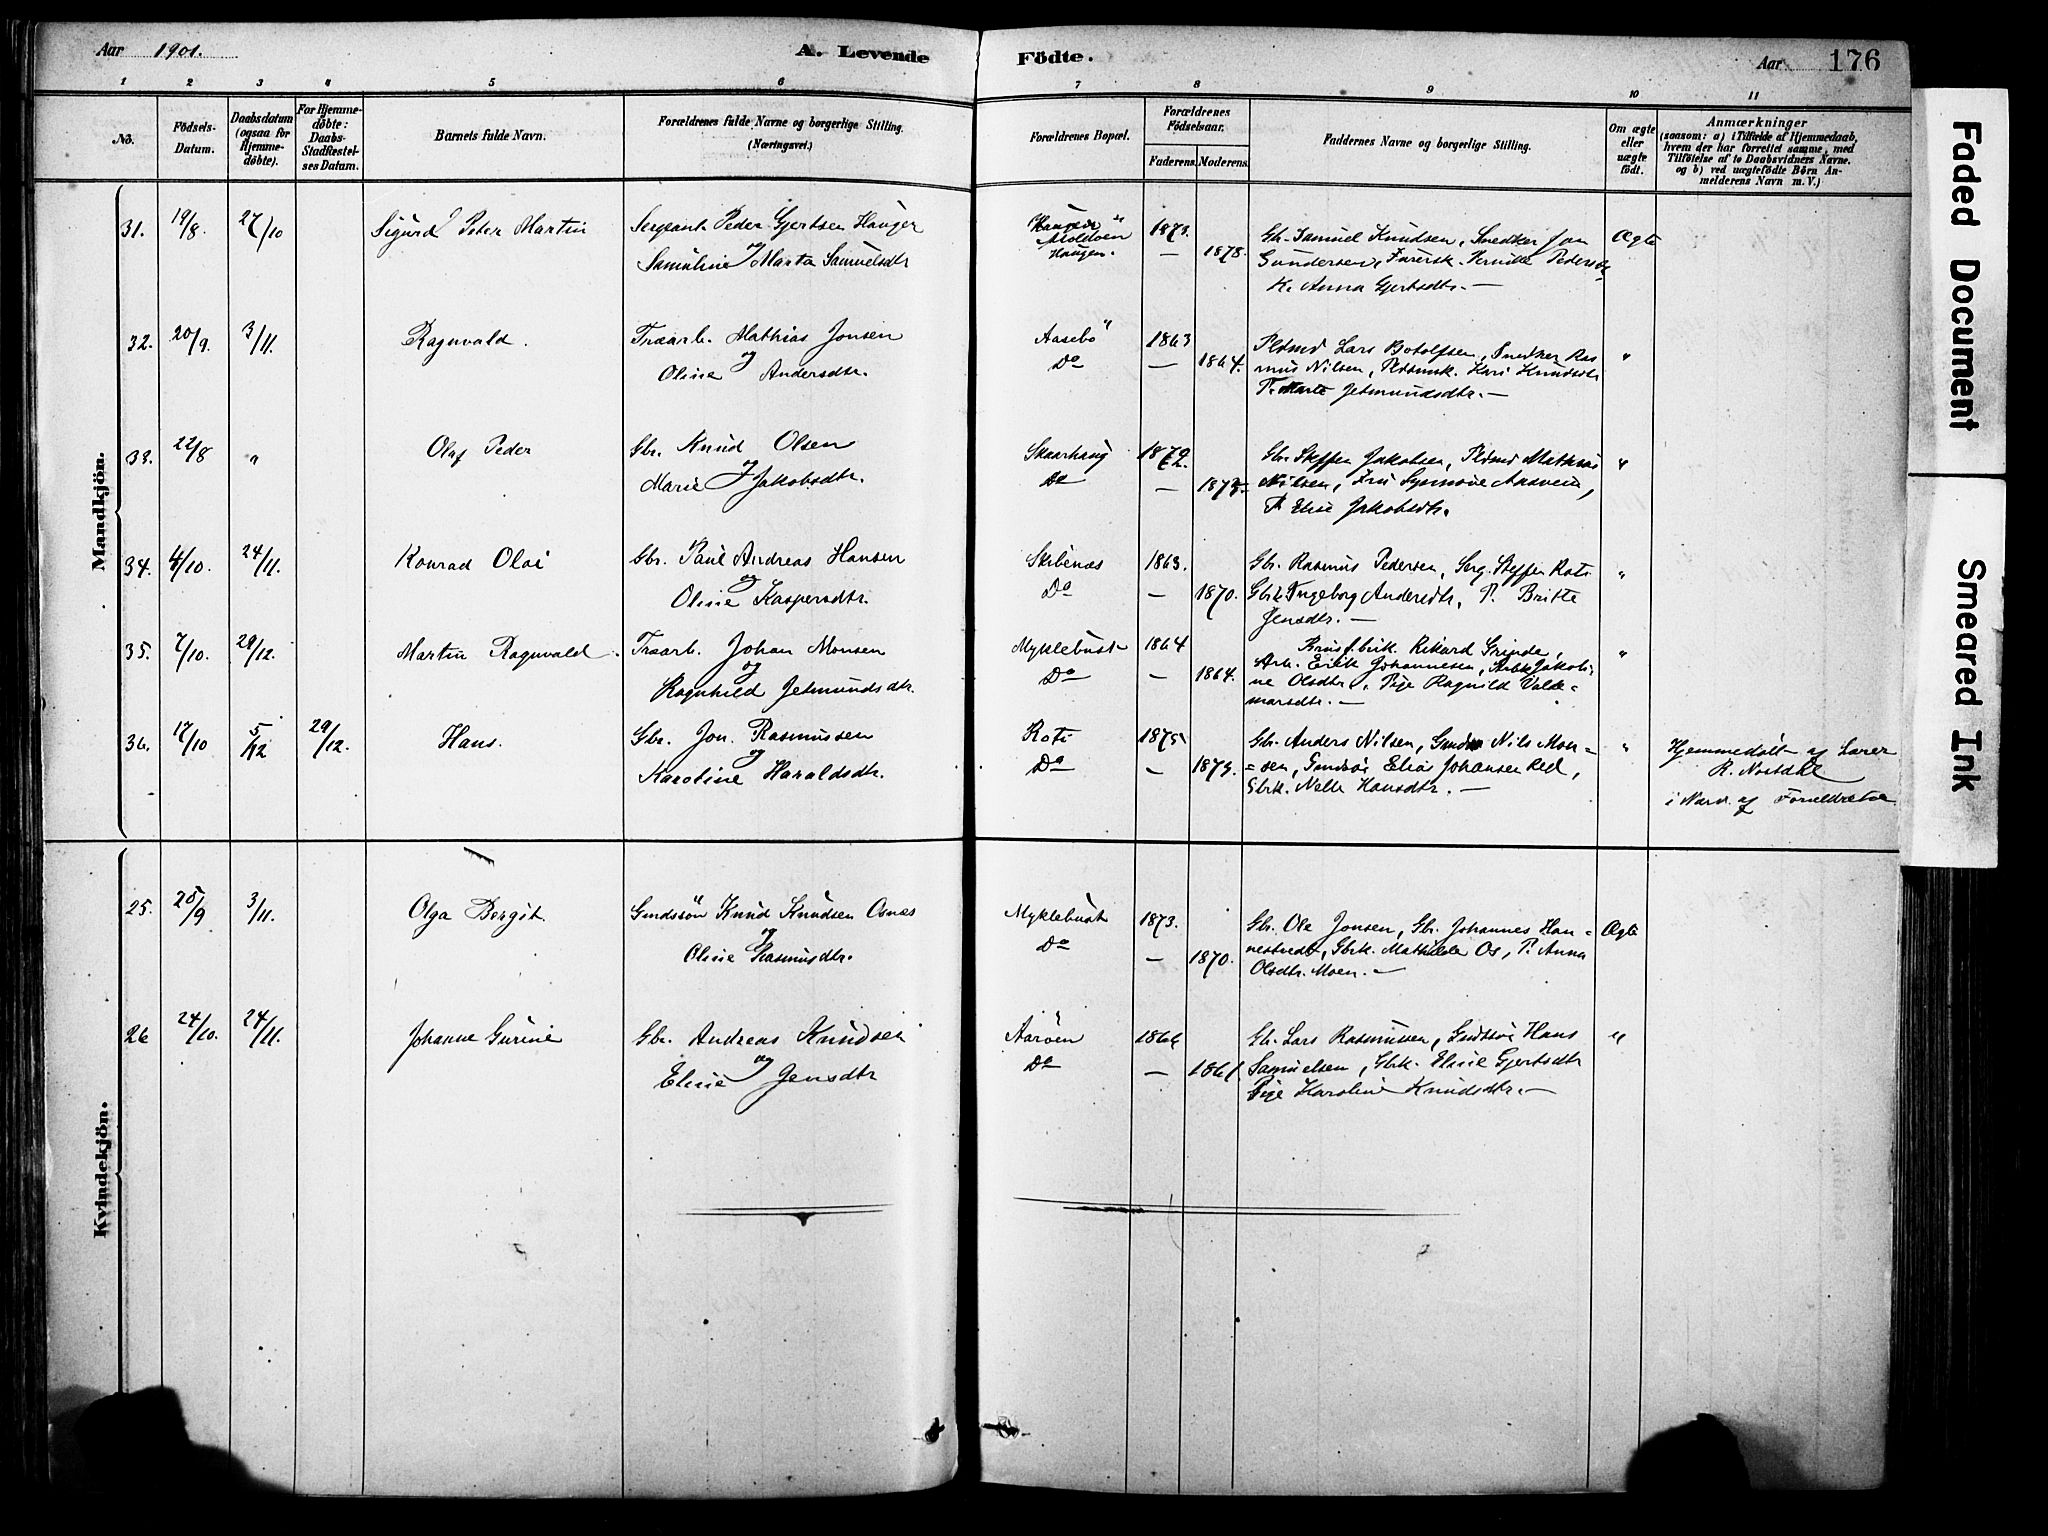 Aar 1901.
A. Levende
Födte.
Aar 176
1 2 3 4 5 6 7 8 9 10 11
No.
Födsels-
Datum.
Daabsdatum
(ogsaa for
Hjemme-
döbte).
For Hjemme-
döbte:
Daabs-
Stadfæstel-
ses Datum.
Barnets fulde Navn.
Forældrenes fulde Navne og borgerlige Stilling.
(Næringsvei.)
Forældrenes Bopæl.
Forældrenes
Födselsaar.
Faderens. Moderens.
Faddernes Navne og borgerlige Stilling.
Om ægte
eller
uægte
födt.
Anmærkninger
(saasom: a) i Tilfælde af Hjemmedaab,
hvem der har forrettet samme, med
Tilföielse af to Daabsvidners Navne.
og b) ved uægtefödte Börn An-
melderens Navn m. V.)
Mandkjön.
31. 19/8. 27/10 Sigurd Peter Martin Sergeant Peder Gjertsen Hauger
og
Samuline Marta Samuelsdtr
Moldöen
Haugen.
1873.
— 1878.
Gbr. Samuel Knudsen, Snedker Jon
Gundersen, Pedersdtr
K. Anna Gjertsdtr. —
Ægte
32. 20/9. 3/11. Ragnvald. Traarb. Mathias Jonsen
og
Oline Andersdtr.
Aasebö
Do
1863
— 1864.
Pldmd Lars Botolfsen, Snedker Ras
mus Nilsen, Pldsmsk. Kari Knudsdtr
P. Marte Jetmundsdtr. —
"
33. 22/8 " Olaf Peder Gbr. Knud Olsen
og
Marie Jakobsdtr.
Skaarhaug
Do
1872.
— 1873.
Gbr. Steffen Jakobsen, Pldmd Mathias
Nilsen, Fru Synnöve Aasvein,
P. Elise Jakobsdtr.
"
34. 4/10. 24/11. Konrad Olai Gbr. Paul Andreas Hansen
og
Oline Kaspersdtr.
Skibenæs
Do
1863.
— 1870.
Gbr. Rasmus Pedersen, Serg. Steffen Roti
Gbrk. Ingeborg Andersdtr, P. Britte
Jensdtr. —
"
35. 7/10. 29/12. Martin Ragnvald. Traarb. Johan Monsen
og
Ragnhild Jetmundsdtr.
Myklebust
Do
1864
— 1864.
Rikard Grinde,
Arb. Eirik Johannesen, Arbk Jakobi-
ne Olsdtr, Pige Ragnild Valde-
marsdtr. —
"
36. 17/10 5/12 29/12. Hans. Gbr. Jon Rasmussen
og
Karoline Haraldsdtr.
Roti
Do
1875
— 1873.
Gbr. Anders Nilsen, Nils Mon-
sen, Elia Johansen Red,
Gbrk. Nelle Hansdtr. —
"
Hjemmedöbt af Lærer
R. Nordahl
i Nærv. af Forældrene
Kvindekjön.
25. 28/9 3/11. Olga Bergit. Gmdssön Knud Knudsen Osnes
og
Oline Rasmusdtr.
Myklebust
Do
1873.
— 1870.
Gbr. Ole Jonsen, Gbr. Johannes Han-
Gbrk. Mathilde Os, P. Anna
Olsdtr. Moen. —
Ægte
26 24/10. 24/11. Johanne Gurine Gbr. Andreas Knudsen
og
Eline Jensdtr
Aaröen
Do
1866
— 1861.
Gbr. Lars Rasmussen, Gmdssön Hans
Samuelsen, Gbrk. Elisie Gjertsdtr
Pige Karoline Knudsdtr. —
"
Faded Document
Smeared Ink